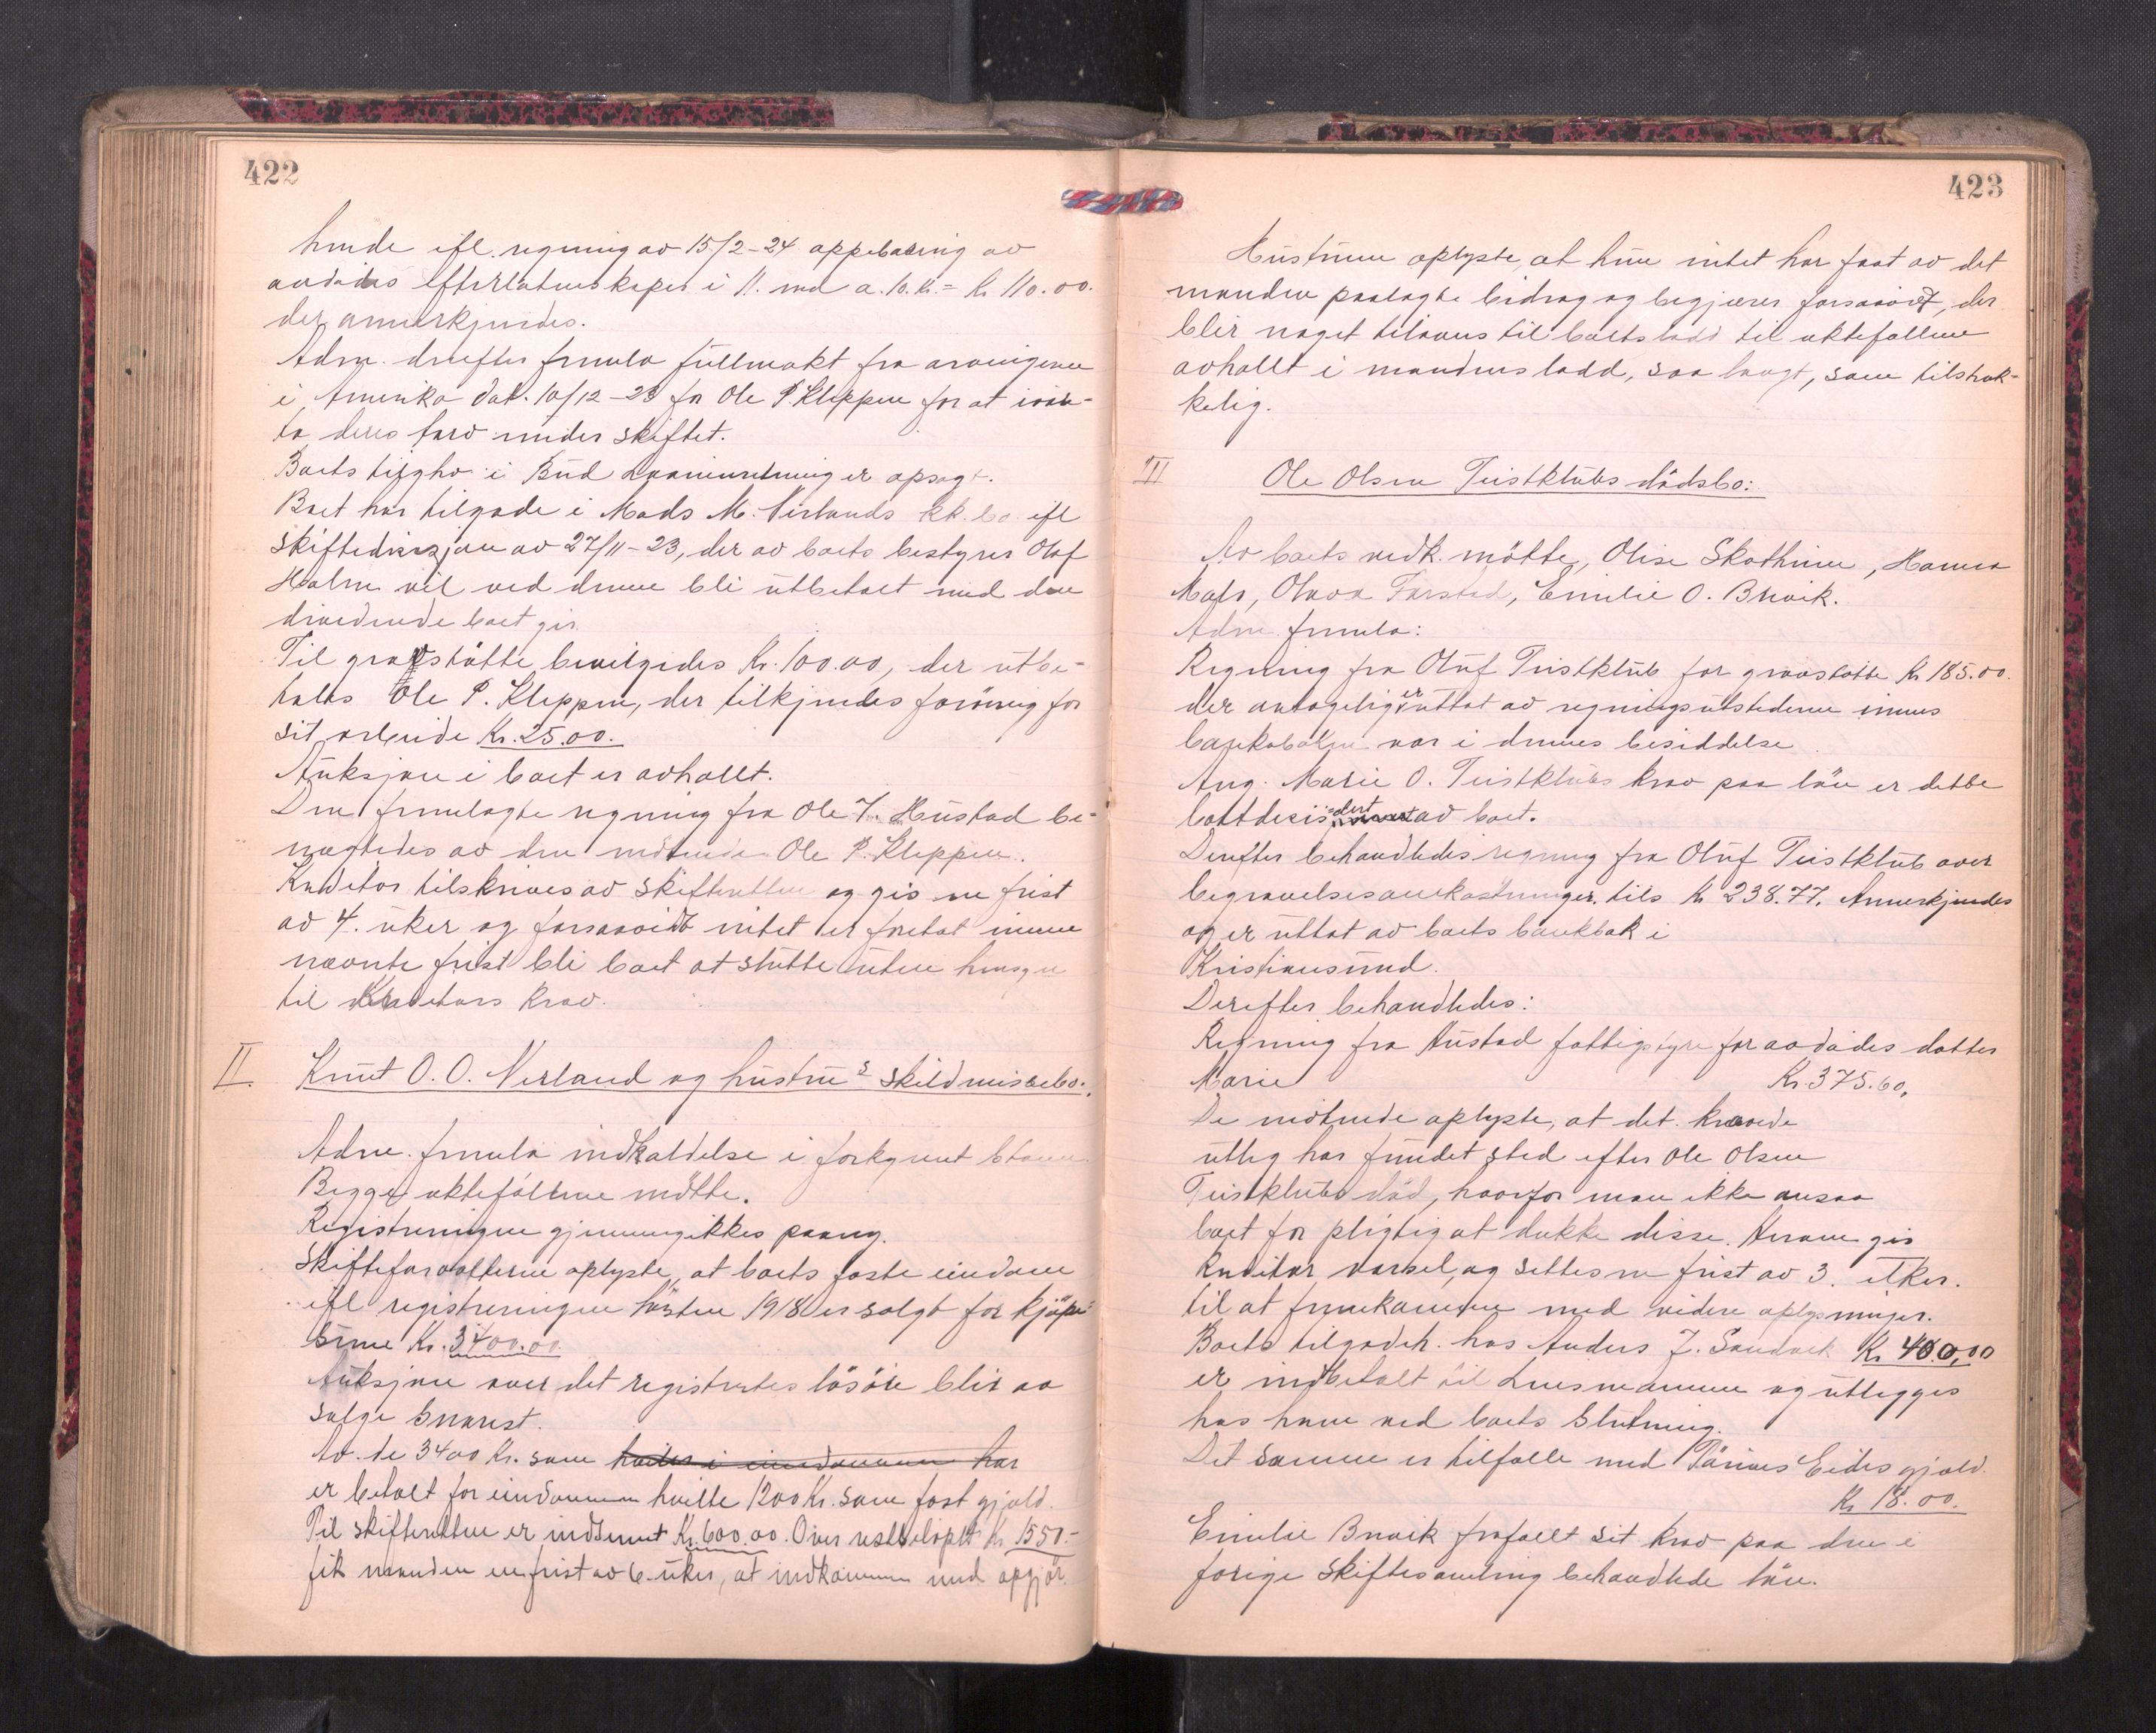 422
hende ifl. regning av 15/2-24 oppebaaring av
avdødes efterladenskaper i 11. md a. 10. kr. = Kr 110.00.
der annerkjendes.
Adm. drefter fremla fullmakt fra arvingene
i Amerika dat. 10/12-23 for Ole P. Kleppen for at ivar-
ta deres tarv under skiftet.
Boets tilgho. i Bud Laaneinretning er opsagt.
Boet har tilgode i Mads M. Nerlands kk. bo ifl
skiftedivisjon av 27/11-23, der av boets bestyrer Olaf
Holm vil ved denne bli utbetalt med den
dividende boet gir.
Til gravstøtte bevilgedes Kr. 100.00, der utbe-
tales Ole P. Kleppen, der tilkjendes forøvrig for
sit arbeide Kr. 25.00.
Auksjon i boet er avhollt.
Den fremlagte regning fra Ole T. Hustad be-
nægtedes av den møtende Ole P. Kleppen.
Kreditor tilskrives av skifteretten og gis en frist
av 4. uker og forsaavidt intet er foretat innen
nævnte frist bli boet at slutte uten hensyn
til kreditors krav.
II. Knut O. O. Nerland og hustru's skildmissebo.
Adm. fremla indkaldelse i forkynnt stann
Begge ektefollene møtte.
Registreringen gjennemgikkes paany.
Skifteforvalteren oplyste, at boets faste eiendom
ifl registreringen høsten 1918 er solgt for kjøpe-
sum Kr. 3400.00
Auksjon over det registrertes løsøre blir aa
selge snarest.
Av de 3400 Kr. som heiler i eiendommen har
er betalt for eindommen heilte 1200 Kr. som fast gjæld.
Til skifteretten er indsennt Kr. 600.00. Over restbeløpet Kr. 1550.-
fik manden en frist av 6. uker, at indkomme med opgjør.
423
Hustruen oplyste, at hun intet har faat av det
manden paalagte bidrag og begjærer forsaavidt, der
blir noget tilovers til boetslodd til ektefollene
avhollt i mandens lodd, saa langt, som tilstræk-
kelig.
III Ole Olsen Teistklubs dødsbo:
Av boets vedk. møtte, Olise Skothun, Hanna
Mals, Olava Farstad, Emilie O. Brvik.
Adm. fremla:
Regning fra Oluf Teistklub for gravstøtte Kr. 185.00.
der antagelig er uttat av regningsutstederen innens
bankboken var i dennes besiddelse.
Ang. Marie O. Teistklubs krav paa løn er dette
bortdecisdert av boet.
Derefter behandledes regning fra Oluf Teistklub over
begravelsesomkostninger tils Kr 238.77. Annerkjendes
og er uttat av boets bankbok i
Kristiansund.
Derefter behandledes:
Regning fra Hustad fattigstyre for avdødes datter
Marie Kr. 375.60.
De møtende oplyste, at det krævede
utleg har fundet sted efter Ole Olsen
Teistklubs død, hvorfor man ikke ansaa
boet for pligtig at dække disse. Herom gis
Kreditor varsel, og settes en frist av 3. uker.
til at fremkomme med videre oplysninger.
Boets tilgodeh. hos Anders J. Sandvik Kr 400,00
er indbetalt til Lensmannen og utlegges
hos ham ved boets slutning.
Det samme er tilfelle med Parius Eides gjæld.
Kr 18.00.
Emilie Brvik frafallt sit krav paa den i
forige skiftesamling behandlede løn.